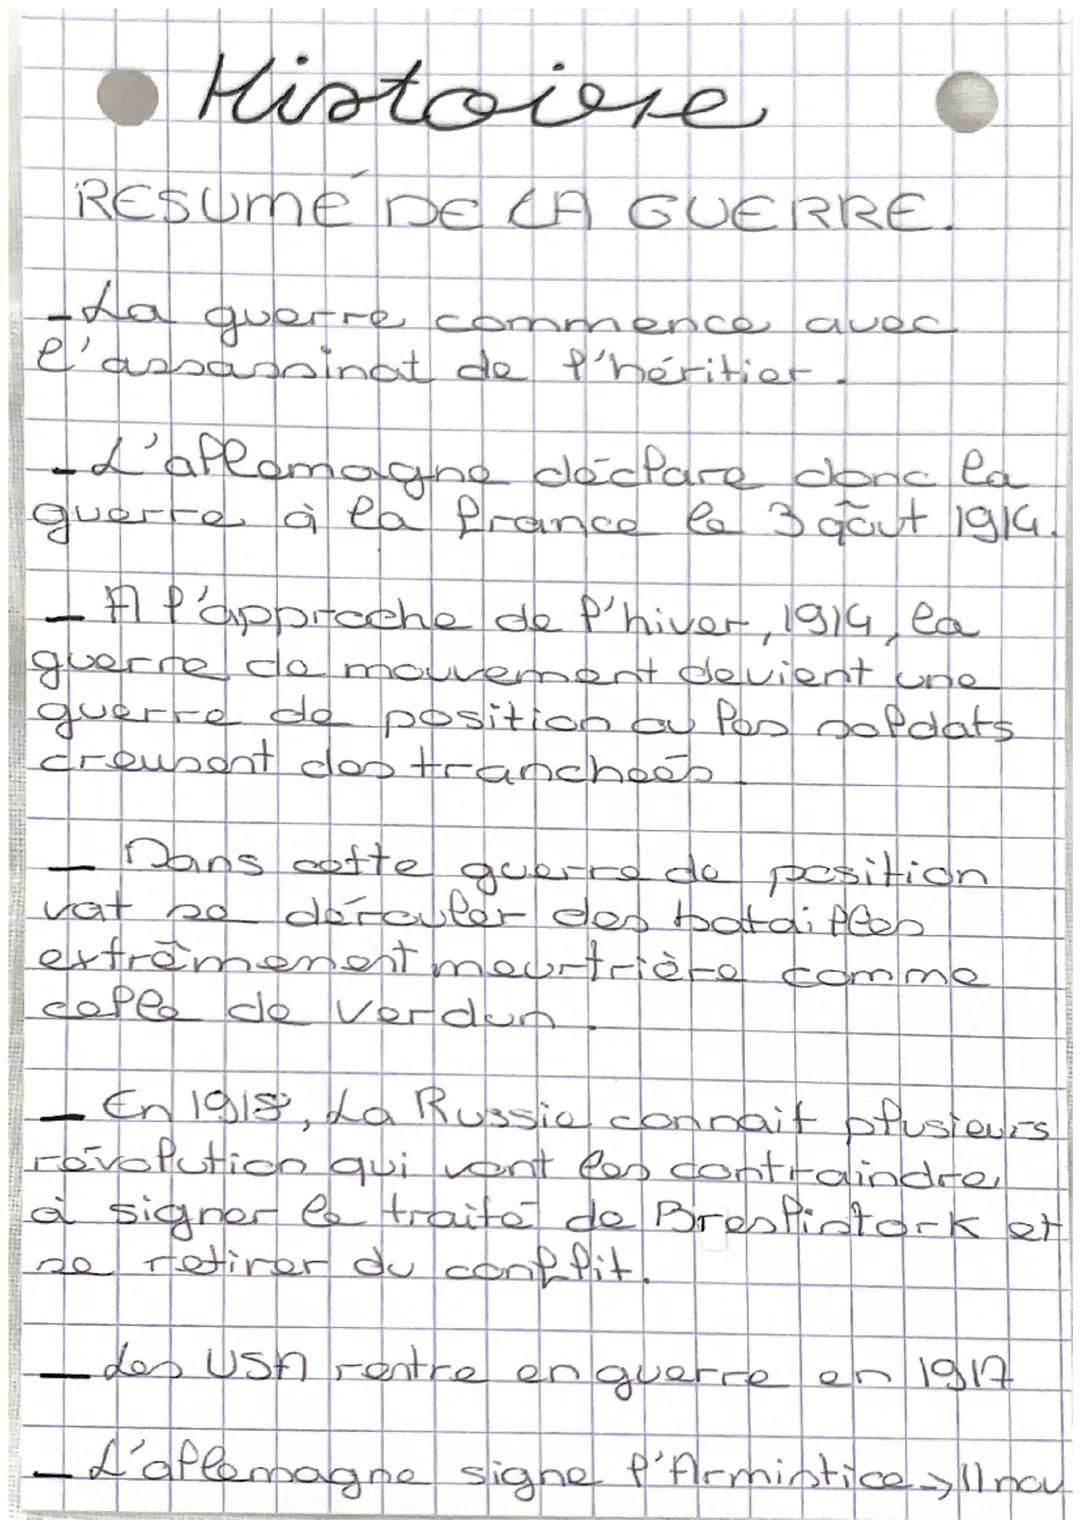 Histoire
RESUMÉ DE LA GUERRE.
- La guerre commence avec
l'assassinat de l'héritier.
- L'allemagne déclare donc la
guerre à la france le 3 août 1914.
- A l'approche de l'hiver, 1914, la
guerre de mouvement devient une
guerre de position ou les soldats
creusent des tranchées.
- Dans cette guerre de position
vat se dérouler des batailles
extrêmement meurtrière comme
celle de Verdun.
- En 1918, La Russie connait plusieurs
révolution qui vont les contraindre
à signer le traité de Breslistork et
se retirer du conflit.
- Les USA rentre en guerre en 1917
- L'allemagne signe l'Armistice → 11 nov